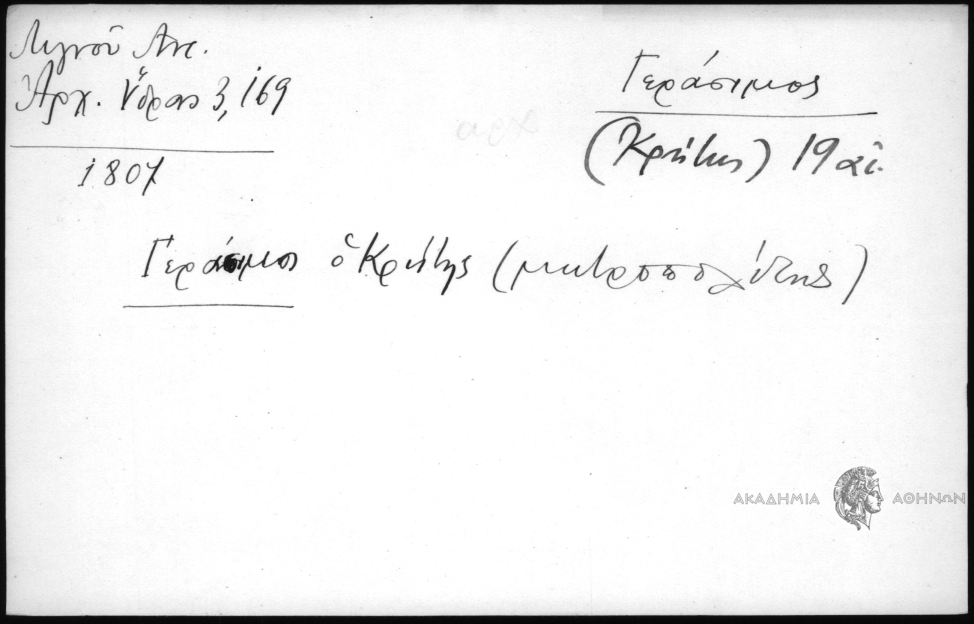 Λιγνοῦ Ἀντ.
Ἀρχ. Ὕδρας 3, 169
1807
Γεράσιμος
(Κρήτης) 19 αἰ.
αρχ
Γεράσιμος ὁ Κρήτης (μητροπολίτης)
ΑΚΑΔΗΜΙΑ ΑΘΗΝΩΝ